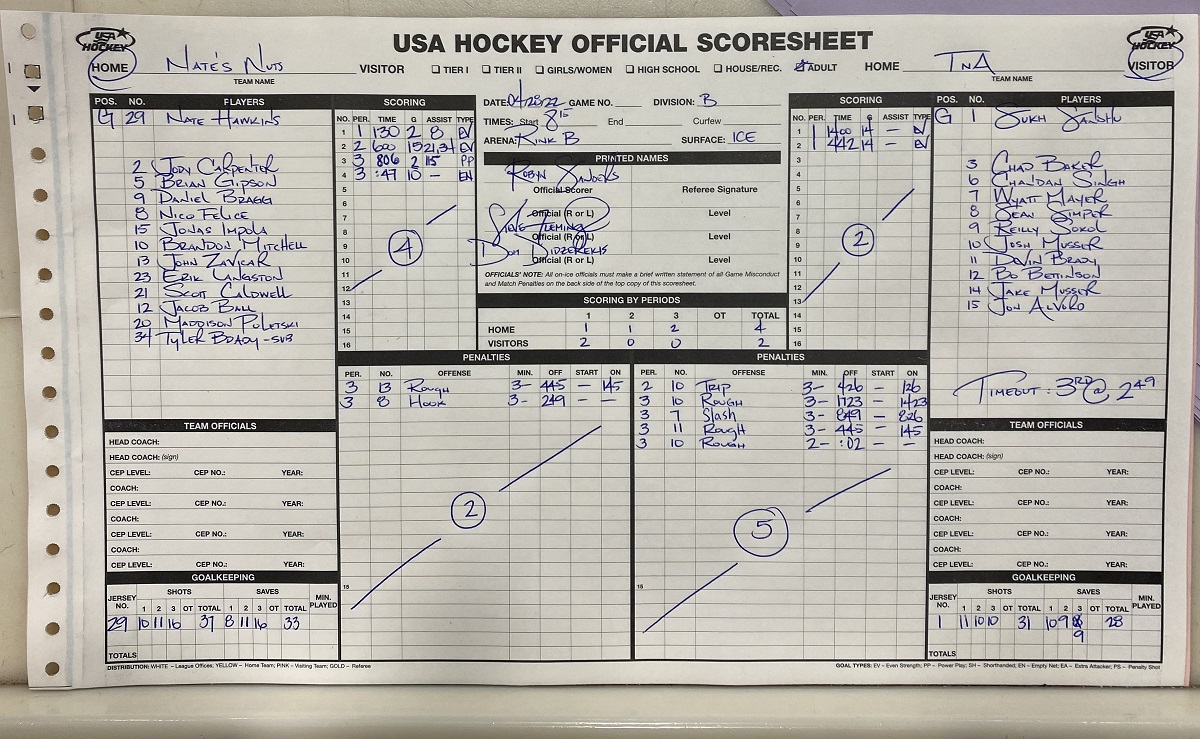 USA HOCKEY OFFICIAL SCORESHEET
USA HOCKEY
USA HOCKEY
HOME NATE'S NUTS VISITOR
TEAM NAME
☐ TIER I ☐ TIER II ☐ GIRLS/WOMEN ☐ HIGH SCHOOL ☐ HOUSE/REC. ADULT
HOME TNA VISITOR
TEAM NAME
POS. NO. PLAYERS
G 29 NATE HAWKINS
2 JODY CARPENTER
5 BRIAN GIPSON
9 DANIEL BRAGG
8 NICO FELICE
15 JONAS IMPOLA
10 BRANDON MITCHELL
13 JOHN ZAVICAR
23 ERIK LANGSTON
21 SCOTT CALDWELL
12 JACOB BALL
20 MADDISON POLETSKI
34 TYLER BRADY - SUB
SCORING
NO. PER. TIME G ASSIST TYPE
1 1 130 2 8 EV
2 2 600 15 21,34 EV
3 3 806 2 15 PP
4 3 :47 10 – EN
5
6
7
8
9
10
11
12
13
14
15
16
4
DATE: 04/28/22 GAME NO. DIVISION: B
TIMES: Start 8 15 End Curfew
ARENA: RINK B SURFACE: ICE
PRINTED NAMES
ROBYN SANDERS
Official Scorer Referee Signature
STEVE FLEMING
Official (R or L) Level
Official (R or L) Level
DON
Official (R or L) Level
OFFICIALS' NOTE: All on-ice officials must make a brief written statement of all Game Misconduct
and Match Penalties on the back side of the top copy of this scoresheet.
SCORING BY PERIODS
1 2 3 OT TOTAL
HOME 1 1 2 4
VISITORS 2 0 0 2
SCORING
NO. PER. TIME G ASSIST TYPE
1 1 1400 14 – EV
2 1 442 14 – EV
3
4
5
6
7
8
9
10
11
12
13
14
15
16
2
POS. NO. PLAYERS
G 1 SUKH SANDHU
3 CHAD BAKER
6 CHANDAN SINGH
7 WYATT MAYER
8 SEAN SIMPER
9 REILLY SOKOL
10 JOSH MUSSER
11 DEVIN BRADY
12 BO BETTINSON
14 JAKE MUSSER
15 JON ALVORO
TIMEOUT: 3RD @ 2 49
PENALTIES
PER. NO. OFFENSE MIN. OFF START ON
3 13 ROUGH 3– 445 – 145
3 8 HOOK 3– 249 – –
2
15
PENALTIES
PER. NO. OFFENSE MIN. OFF START ON
2 10 TRIP 3– 426 – 126
3 10 ROUGH 3– 1723 – 1423
3 7 Slash 3– 849 – 826
3 11 Rough 3– 445 – 145
3 10 ROUGH 2– :02 – –
5
15
TEAM OFFICIALS
HEAD COACH:
HEAD COACH: (sign)
CEP LEVEL: CEP NO.: YEAR:
COACH:
CEP LEVEL: CEP NO.: YEAR:
COACH:
CEP LEVEL: CEP NO.: YEAR:
COACH:
CEP LEVEL: CEP NO.: YEAR:
GOALKEEPING
JERSEY NO. SHOTS SAVES MIN. PLAYED
1 2 3 OT TOTAL 1 2 3 OT TOTAL
29 10 11 16 37 8 11 16 33
TOTALS
TEAM OFFICIALS
HEAD COACH:
HEAD COACH: (sign)
CEP LEVEL: CEP NO.: YEAR:
COACH:
CEP LEVEL: CEP NO.: YEAR:
COACH:
CEP LEVEL: CEP NO.: YEAR:
COACH:
CEP LEVEL: CEP NO.: YEAR:
GOALKEEPING
JERSEY NO. SHOTS SAVES MIN. PLAYED
1 2 3 OT TOTAL 1 2 3 OT TOTAL
1 11 10 10 31 10 9 9 28
TOTALS
DISTRIBUTION: WHITE – League Offices; YELLOW – Home Team; PINK – Visiting Team; GOLD – Referee
GOAL TYPES: EV – Even Strength; PP – Power Play; SH – Shorthanded; EN – Empty Net; EA – Extra Attacker, PS – Penalty Shot